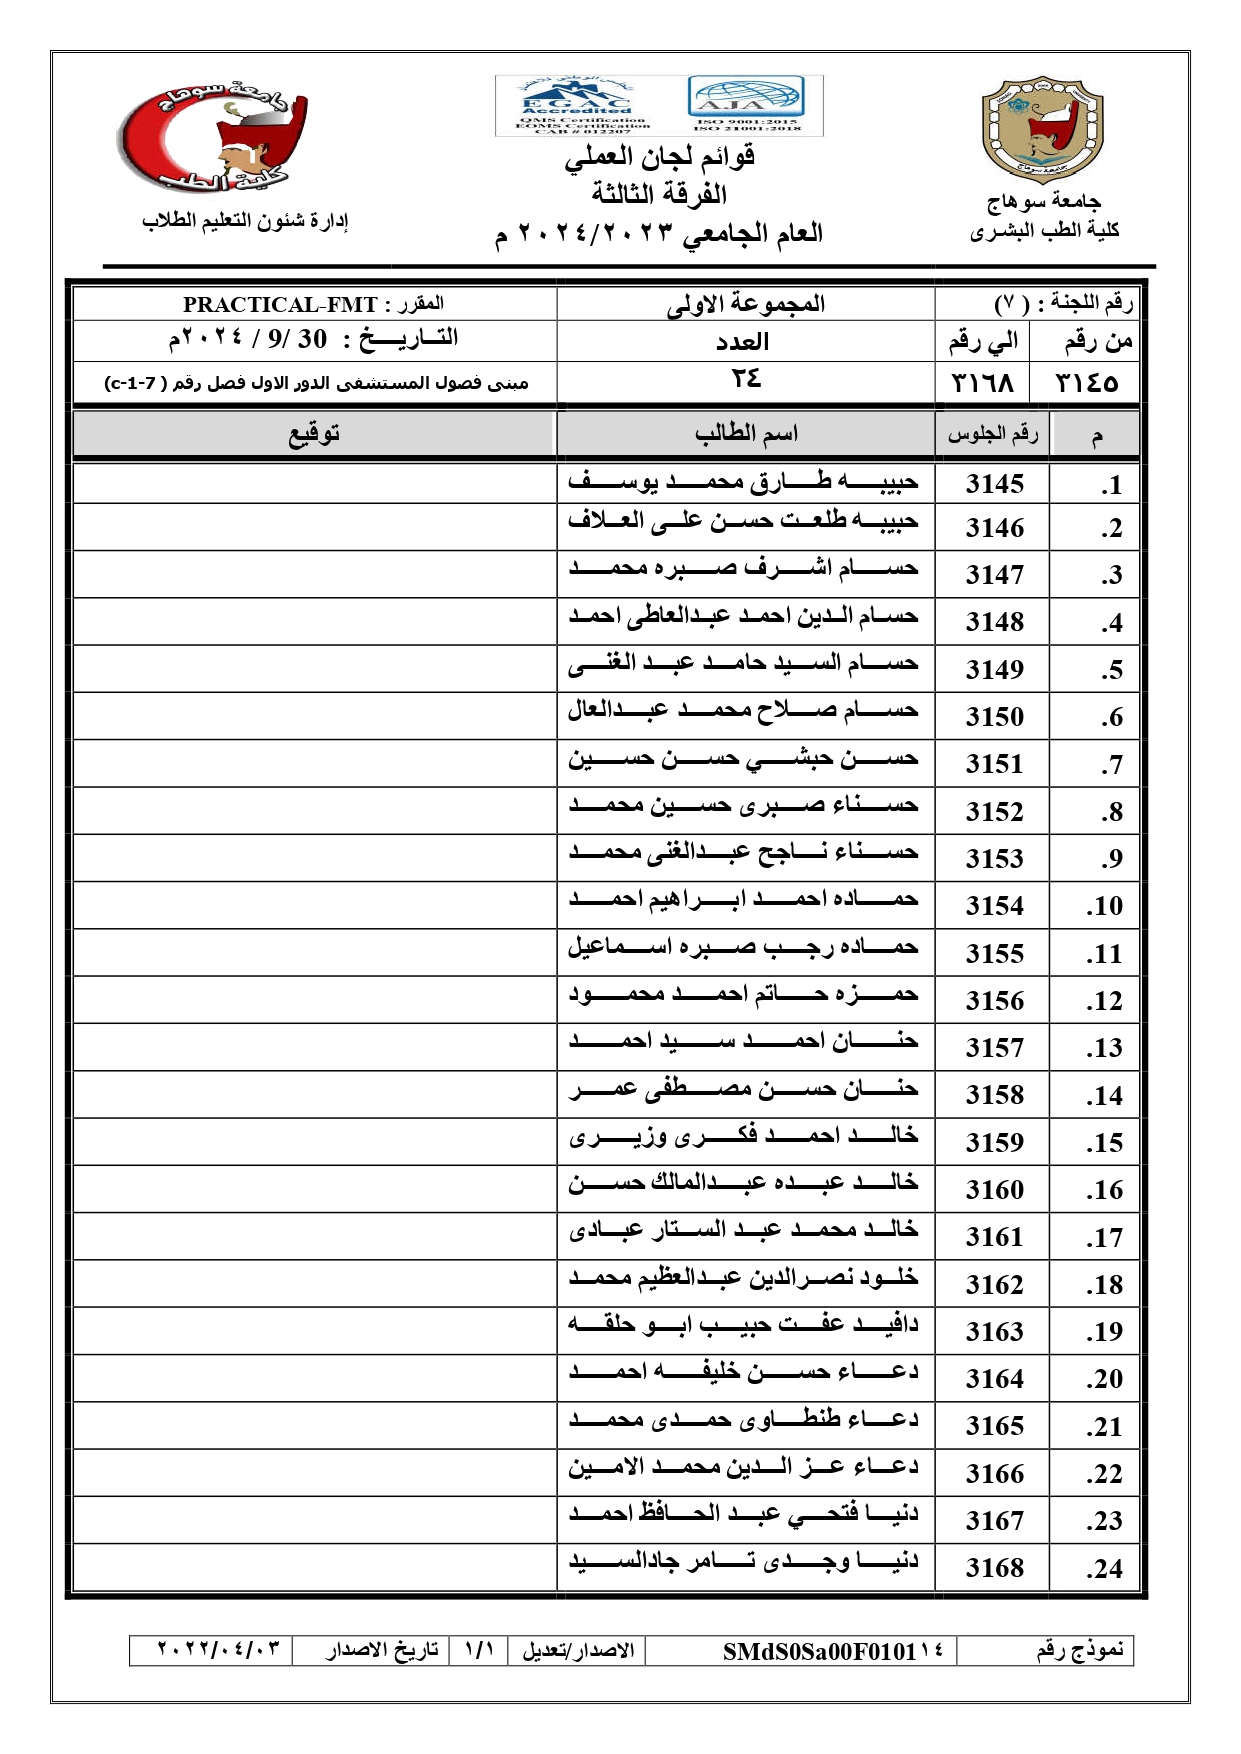 جامعة سوهاج
كلية الطب
إدارة شئون التعليم الطلاب
EGAC
Accredited
QMS Certification
EOMS Certification
CAB # 012207
AJA
ISO 9001:2015
ISO 21001:2018
قوائم لجان العملي
الفرقة الثالثة
العام الجامعي ٢٠٢٤/٢٠٢٣ م
جامعة سوهاج
جامعة سوهاج
كلية الطب البشرى
رقم اللجنة : ( ٧) المجموعة الاولى المقرر : PRACTICAL-FMT
من رقم الي رقم العدد التـــاريـــــخ : 30 /9 / ٢٠٢٤م
٣١٤٥ ٣١٦٨ ٢٤ مبنى فصول المستشفى الدور الاول فصل رقم ( c-1-7)
م رقم الجلوس اسم الطالب توقيع
1. 3145 حبيبه طارق محمد يوسف
2. 3146 حبيبه طلعت حسن على العلاف
3. 3147 حسام اشرف صبره محمد
4. 3148 حسام الدين احمد عبدالعاطى احمد
5. 3149 حسام السيد حامد عبد الغنى
6. 3150 حسام صلاح محمد عبدالعال
7. 3151 حسن حبشي حسن حسين
8. 3152 حسناء صبرى حسين محمد
9. 3153 حسناء ناجح عبدالغنى محمد
10. 3154 حماده احمد ابراهيم احمد
11. 3155 حماده رجب صبره اسماعيل
12. 3156 حمزه حاتم احمد محمود
13. 3157 حنان احمد سيد احمد
14. 3158 حنان حسن مصطفى عمر
15. 3159 خالد احمد فكرى وزيرى
16. 3160 خالد عبده عبدالمالك حسن
17. 3161 خالد محمد عبد الستار عبادى
18. 3162 خلود نصرالدين عبدالعظيم محمد
19. 3163 دافيد عفت حبيب ابو حلقه
20. 3164 دعاء حسن خليفه احمد
21. 3165 دعاء طنطاوى حمدى محمد
22. 3166 دعاء عز الدين محمد الامين
23. 3167 دنيا فتحي عبد الحافظ احمد
24. 3168 دنيا وجدى تامر جادالسيد
نموذج رقم SMdS0Sa00F0101١٤ الاصدار/تعديل ١/١ تاريخ الاصدار ٢٠٢٢/٠٤/٠٣